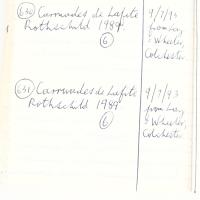 650 Carruades de Lafite
Rothschild 1989.
6
9/7/93
from Lay
& Wheeler,
Colchester
651 Carruades de Lafite
Rothschild 1989
6
9/7/93
from Lay
& Wheeler,
Colchester